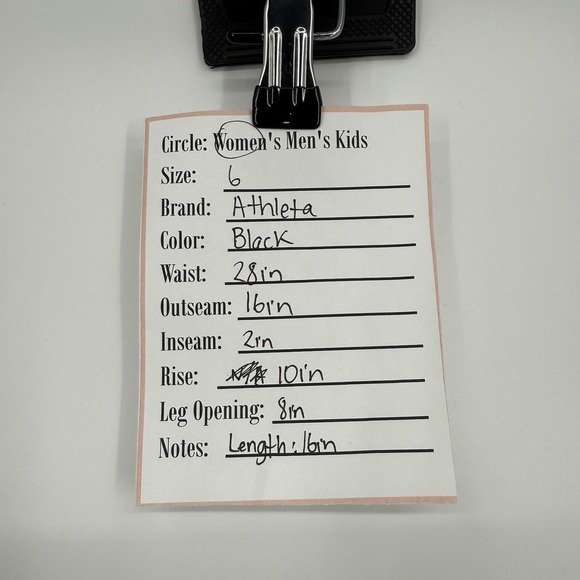 Circle: Women's Men's Kids
Size: 6
Brand: Athleta
Color: Black
Waist: 28in
Outseam: 16in
Inseam: 2in
Rise: 10in
Leg Opening: 8in
Notes: Length: 16in